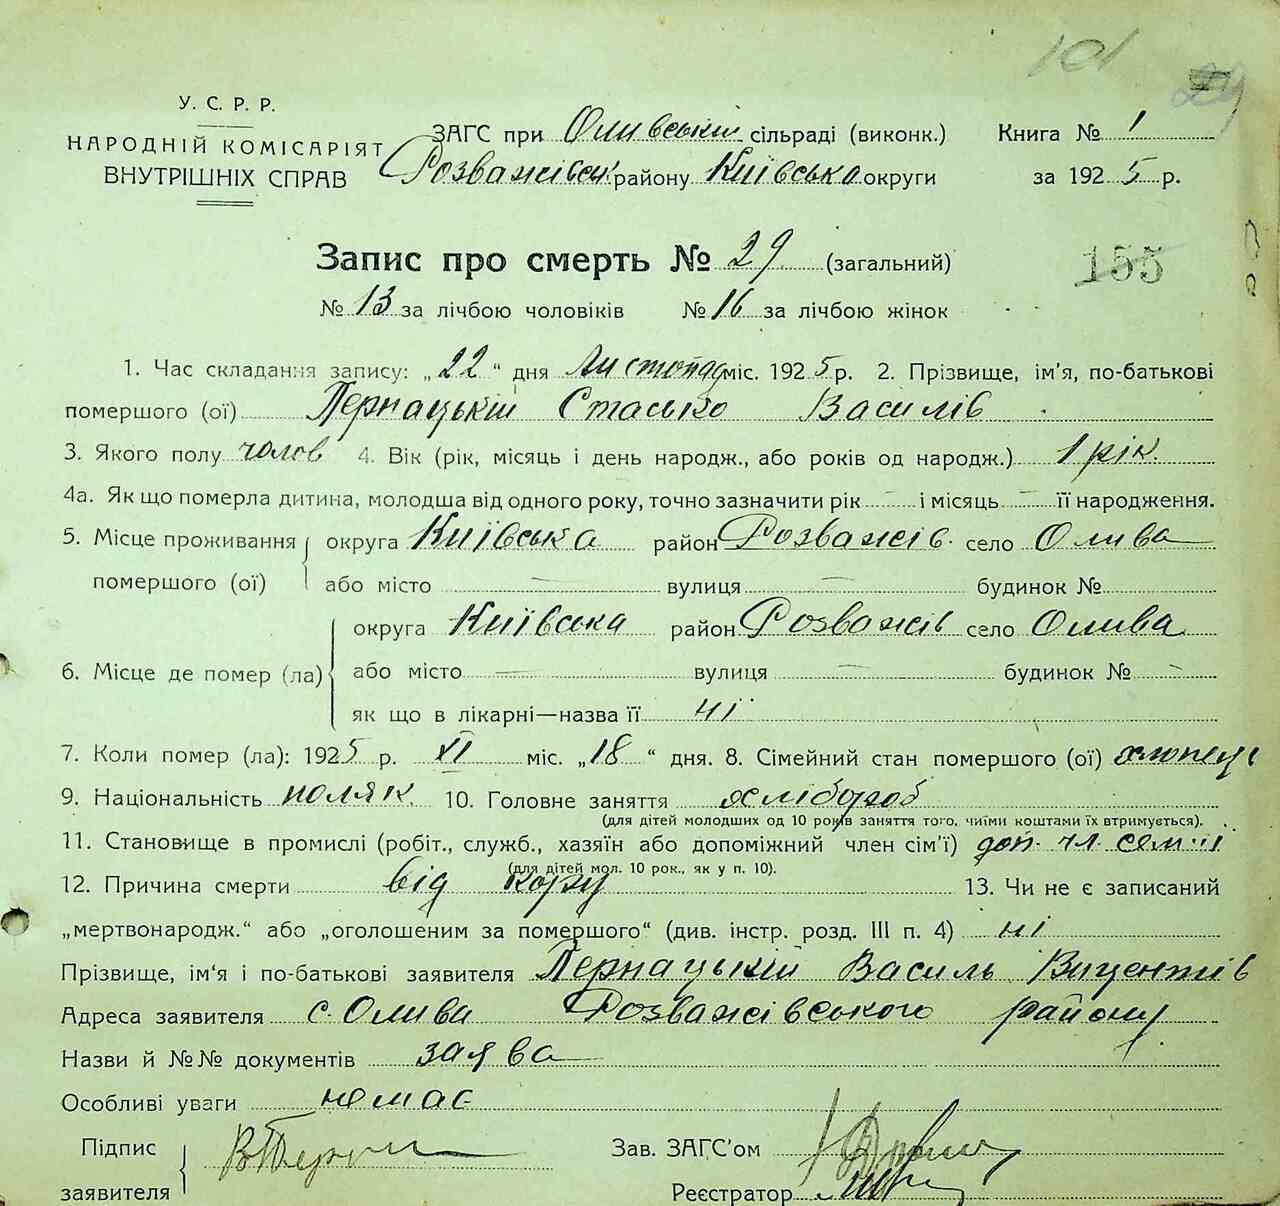 101
29
У. С. Р. Р.
НАРОДНІЙ КОМІСАРІЯТ
ВНУТРІШНІХ СПРАВ
ЗАГС при Оливській сільраді (виконк.) Книга № 1
Розважівськ. району Київська округи за 1925 р.
Запис про смерть № 29 (загальний)
155
№ 13 за лічбою чоловіків № 16 за лічбою жінок
1. Час складання запису: „22“ дня Листопад міс. 1925 р. 2. Прізвище, ім'я, по-батькові
помершого (ої) Пернацький Стасько Василів
3. Якого полу чолов 4. Вік (рік, місяць і день народж., або років од народж.) 1 рік.
4а. Як що померла дитина, молодша від одного року, точно зазначити рік — і місяць — її народження.
5. Місце проживання помершого (ої) округа Київська район Розважів. село Олива
або місто — вулиця — будинок №
6. Місце де помер (ла) округа Київська район Розважів село Олива
або місто — вулиця — будинок № —
як що в лікарні—назва її ні
7. Коли помер (ла): 1925 р. XI міс. „18“ дня. 8. Сімейний стан помершого (ої) хлопець
9. Національність поляк. 10. Головне заняття хлібороб
(для дітей молодших од 10 років заняття того, чиїми коштами їх втримується).
11. Становище в промислі (робіт., служб., хазяїн або допоміжний член сім'ї) доп. чл. семії
(для дітей мол. 10 рок., як у п. 10).
12. Причина смерти від кору 13. Чи не є записаний
„мертвонародж.“ або „оголошеним за помершого“ (див. інстр. розд. III п. 4) ні
Прізвище, ім'я і по-батькові заявителя Пернацький Василь Вицентів
Адреса заявителя с. Олива Розважівського району
Назви й №№ документів заява
Особливі уваги немає
Підпис заявителя
Зав. ЗАГС'ом
Реєстратор